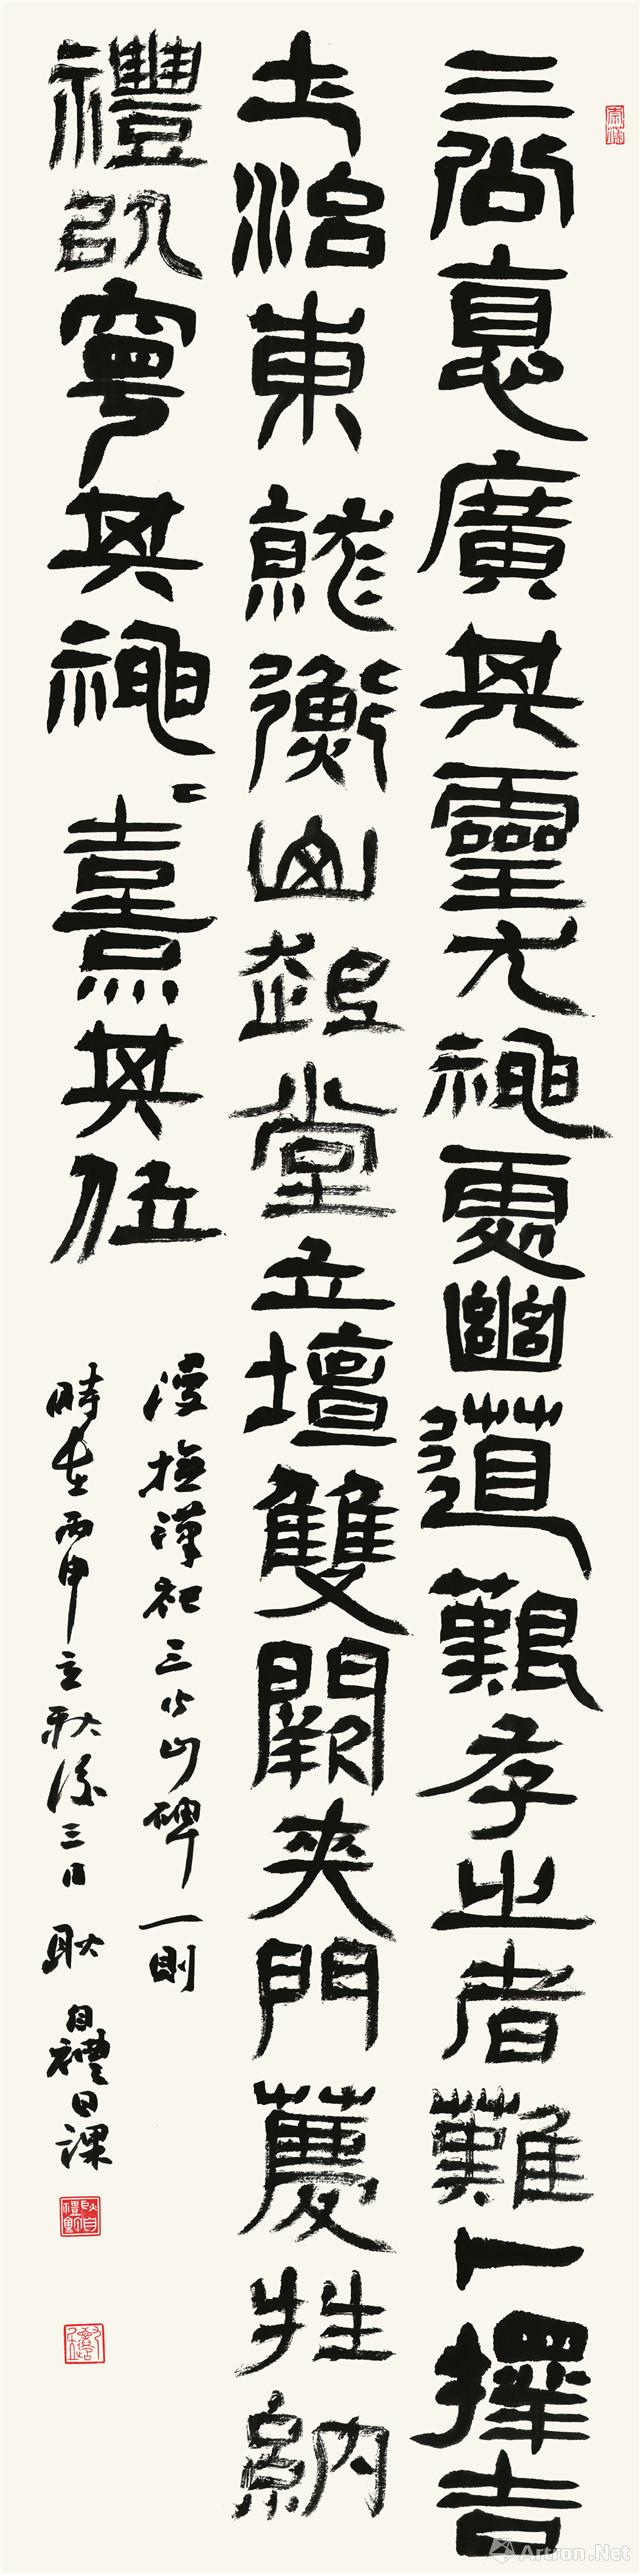 三公悳廣其靈尤神處幽道艱存之者難卜擇吉
土治東就衡山起堂立壇雙闕夾門薦牲納
禮以寧其神〻熹其位
漫撫漢祀三公山碑一則
時在丙申立秋後三日 耿自禮日課
Artron.Net